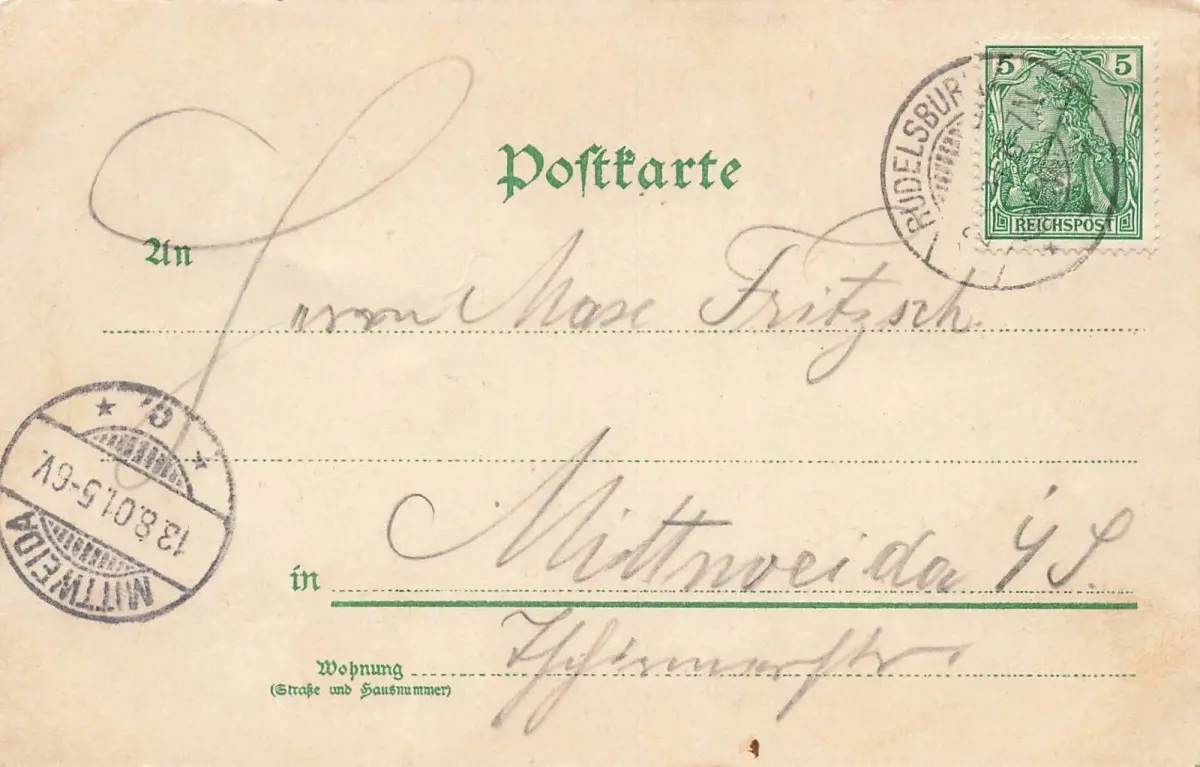 Postkarte
5 5
REICHSPOST
RUDELSBURG
An
Herrn Max Fritzsch.
MITTWEIDA
13.8.01.5-6V.
in Mittweida i/S.
Wohnung
(Straße und Hausnummer)